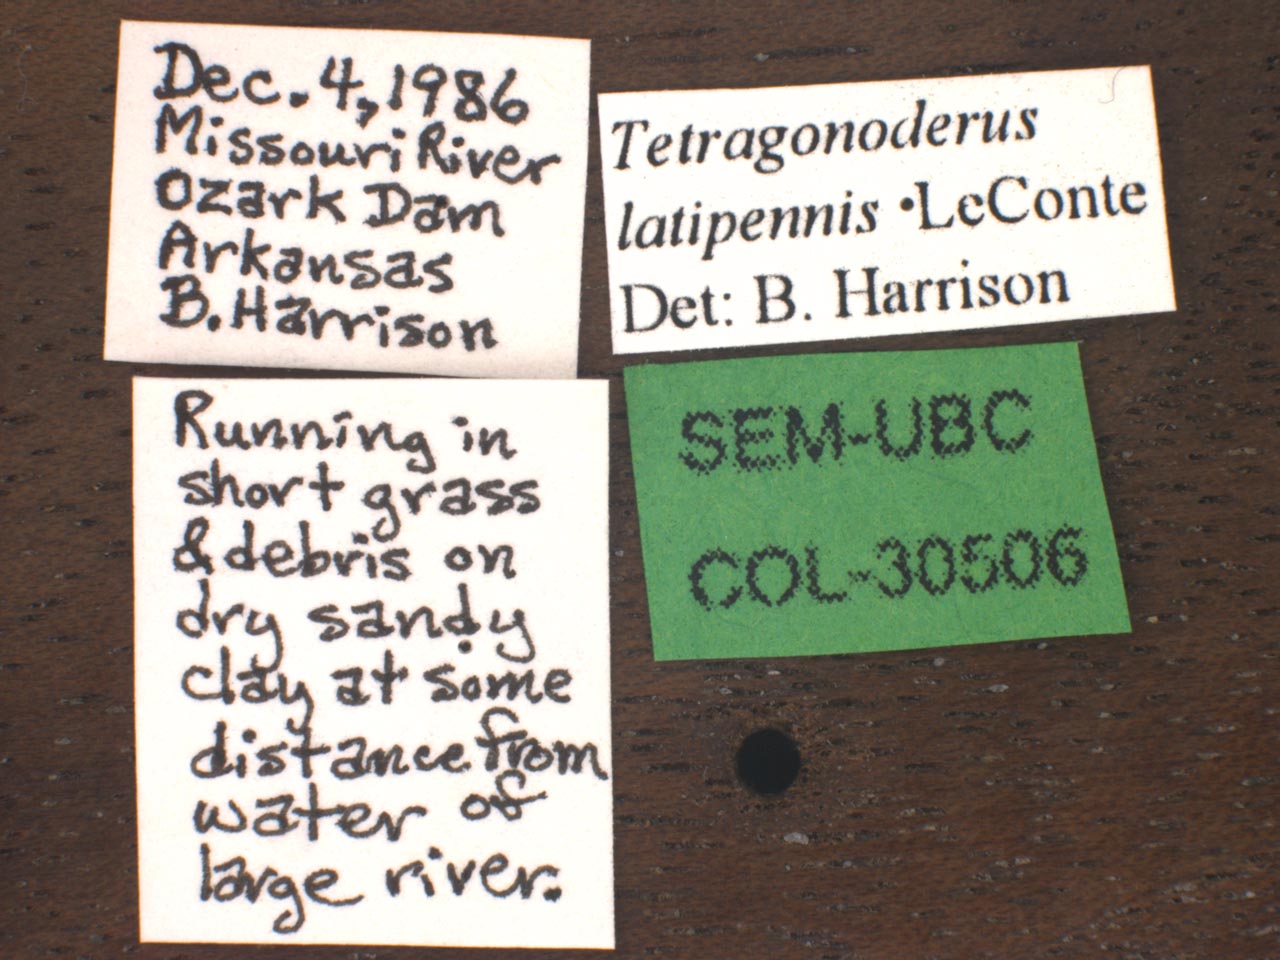 Dec. 4, 1986
Missouri River
Ozark Dam
Arkansas
B. Harrison
Tetragonoderus
latipennis •LeConte
Det: B. Harrison
Running in
short grass
& debris on
dry sandy
clay at some
distance from
water of
large river.
SEM-UBC
COL-30506